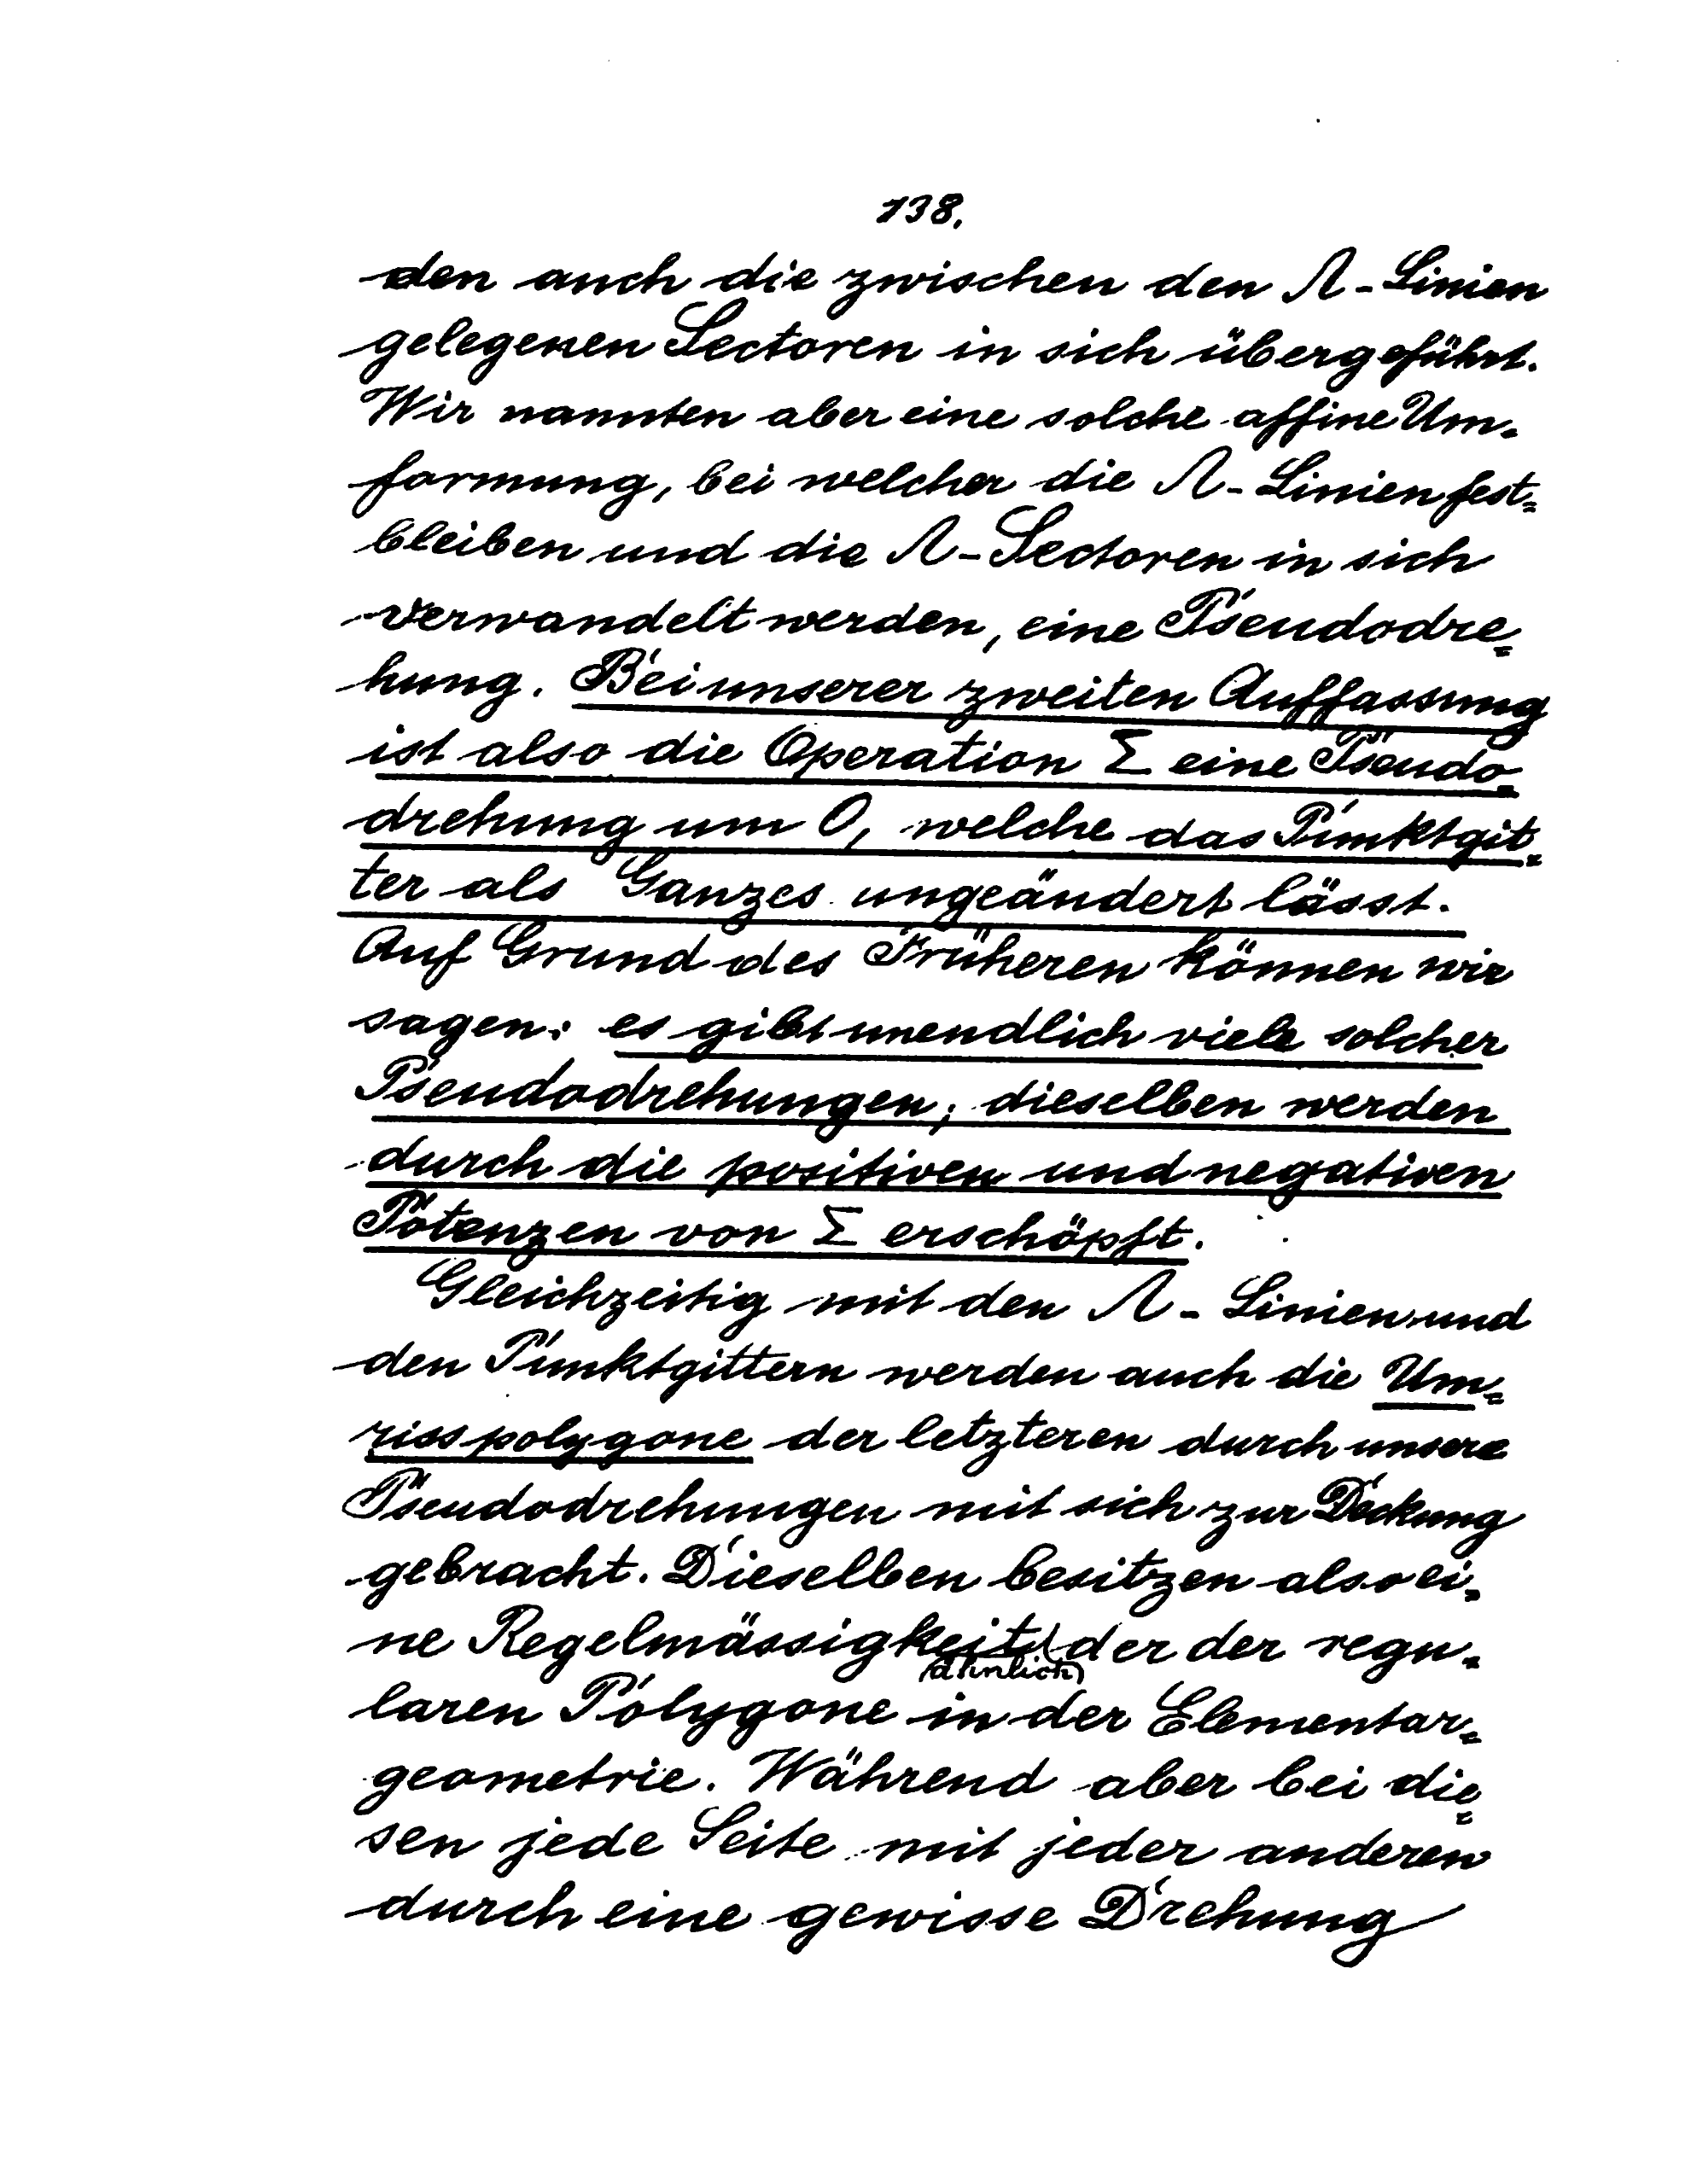 138.
den auch die zwischen den Λ-Linien
gelegenen Sectoren in sich übergeführt.
Wir nannten aber eine solche affine Um-
formung, bei welcher die Λ-Linien fest-
bleiben und die Λ-Sectoren in sich
verwandelt werden, eine Pseudodre-
hung. Bei unserer zweiten Auffassung
ist also die Operation Σ eine Pseudo-
drehung um O, welche das Punktgit-
ter als Ganzes ungeändert lässt.
Auf Grund des Früheren können wir
sagen: es gibt unendlich viele solcher
Pseudodrehungen; dieselben werden
durch die positiven und negativen
Potenzen von Σ erschöpft.
Gleichzeitig mit den Λ-Linien und
den Punktgittern werden auch die Um-
risspolygone der letzteren durch unsere
Pseudodrehungen mit sich zur Deckung
gebracht. Dieselben besitzen also ei-
ne Regelmässigkeit, der der regu-
(ähnlich)
laren Polygone in der Elementar-
geometrie. Während aber bei die-
sen jede Seite mit jeder anderen
durch eine gewisse Drehung